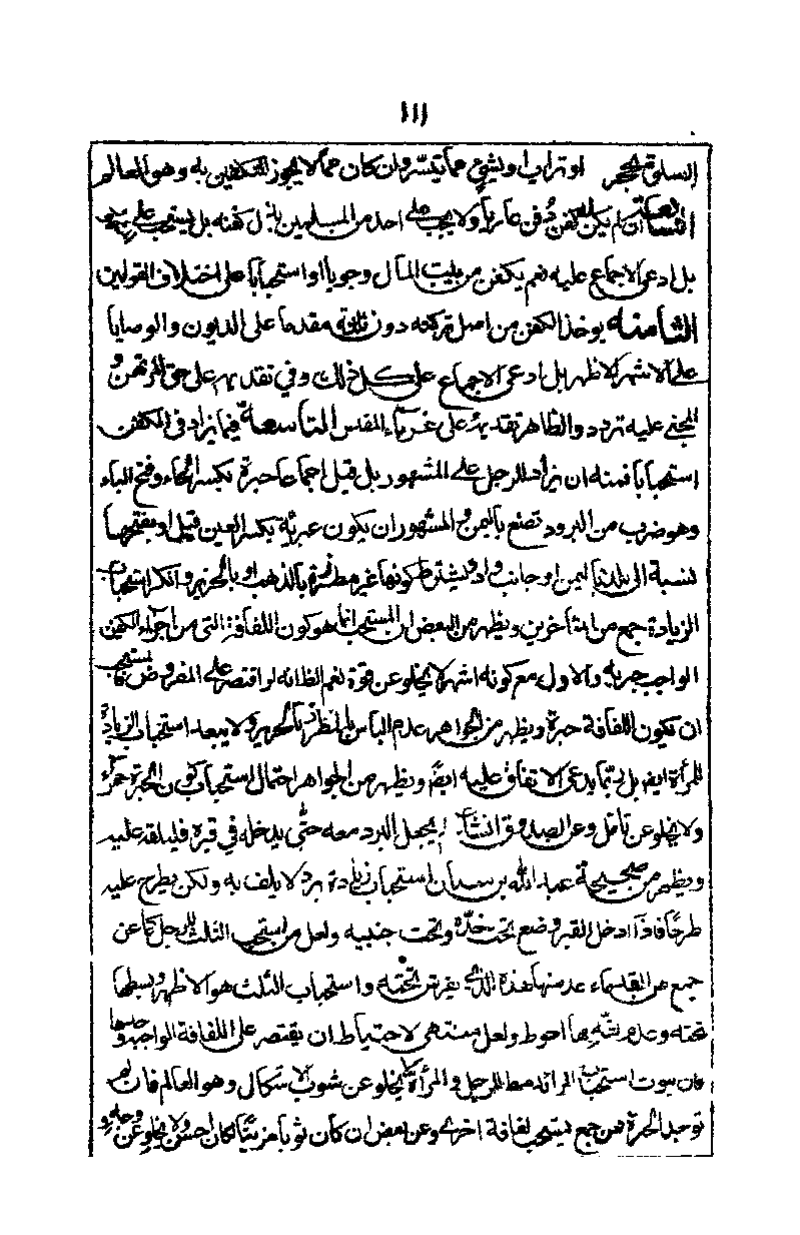 ١١١
او تراب او بشئ مما يتيسر وان كان مما لا يجوز التكفين به وهو العالم
السابعة ان لم يكن كفن دفن عاريا ولا يجب على احد من المسلمين بذل كفنه بل يستحب
بل ادعى الاجماع عليه نعم يكفن من بيت المال وجوبا او استحبابا على اختلاف القولين
الثامنة يوخذ الكفن من اصل تركته دون ثلثه مقدما على الديون والوصايا
على الاشهر الاظهر بل ادعى الاجماع على كل ذلك وفي تقديمه على حق المرتهن و
المجني عليه تردد والظاهر تقديمه على غرماء المفلس التاسعة فيما يزاد في الكفن
استحبابا فمنه ان يزاد للرجل على المشهور بل قيل اجماعا حبرة بكسر الحاء وفتح الباء
وهو ضرب من البرود تصنع باليمن والمشهور ان يكون عبرية بكسر العين قيل او بفتحها
نسبة الى بلد باليمن او جانب واد ويشترط كونها غير مطرزة بالذهب او بالحرير وانكر استحباب
الزيادة جمع من المتاخرين ويظهر من البعض ان المستحب انما هو كون اللفافة التي من اجزاء الكفن
الواجب حبرية والاول مع كونه اشهر لا يخلو عن قوة نعم الظاهر انه لو اقتصر على المفروض يستحب
ان تكون اللفافة حبرة ويظهر من الجواهر عدم الباس بالمطرز بالحرير ولا يبعد استحباب الزيادة
للمرأة ايضا بل ربما يدعى الاتفاق عليه ايضا ويظهر من الجواهر احتمال استحباب كون الحبرة حمراء
ولا يخلو عن تامل وعن الصدوق ان شاء لم يجعل البرد معه حتى يدخله في قبره فيلقه عليه
ويظهر من صحيحة عبد الله بن سنان استحباب زيادة برد لا يلف به ولكن يطرح عليه
طرحا فاذا ادخل القبر وضع تحت خده وتحت جنبيه ولعل من استحب الثلث للرجل كما عن
جمع من القدماء عد منها هذه الذي يفرش تحته واستحباب الثلث هو الاظهر وبسطها
تحته وعدم لفه بها احوط ولعل منتهى الاحتياط ان يقتصر على اللفافة الواجبة
فان ثبوت استحباب الزائد معها للرجل والمرأة لا يخلو عن شوب الاشكال وهو العالم فان لم
توجد الحبرة فعن جمع يستحب لفافة اخرى وعن بعض ان كان ثوبا مزينا كان احسن ولا يخلو عن وجه و